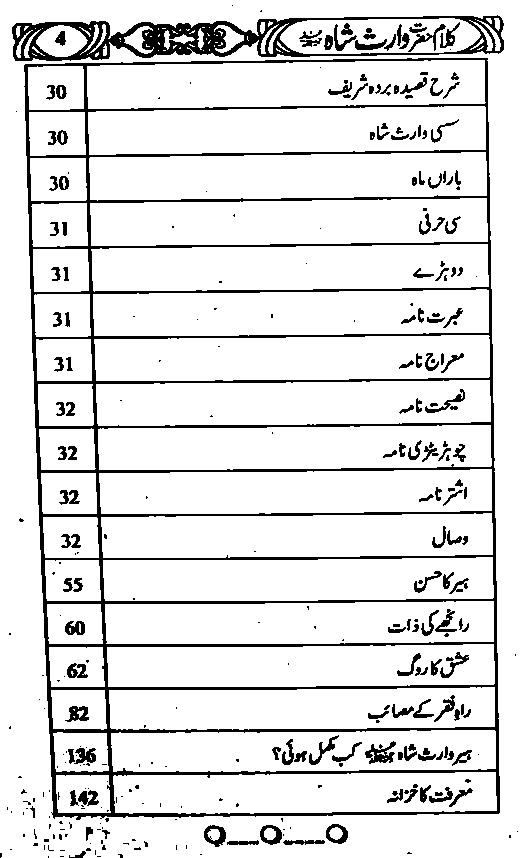 کلام حضرت وارث شاہ رحمۃ اللہ علیہ 4
شرح قصیدہ بردہ شریف 30
سسی وارث شاہ 30
باراں ماہ 30
سی حرفی 31
دوہڑے 31
عبرت نامہ 31
معراج نامہ 31
نصیحت نامہ 32
چوہڑیٹڑی نامہ 32
اشتر نامہ 32
وصال 32
ہیر کا حسن 55
رانجھے کی ذات 60
عشق کا روگ 62
راہِ فقر کے مصائب 82
ہیر وارث شاہ رحمۃ اللہ علیہ کب مکمل ہوئی؟ 136
معرفت کا خزانہ 142